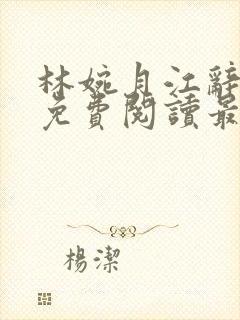 林婉月江辭
免費閱讀最
楊潔